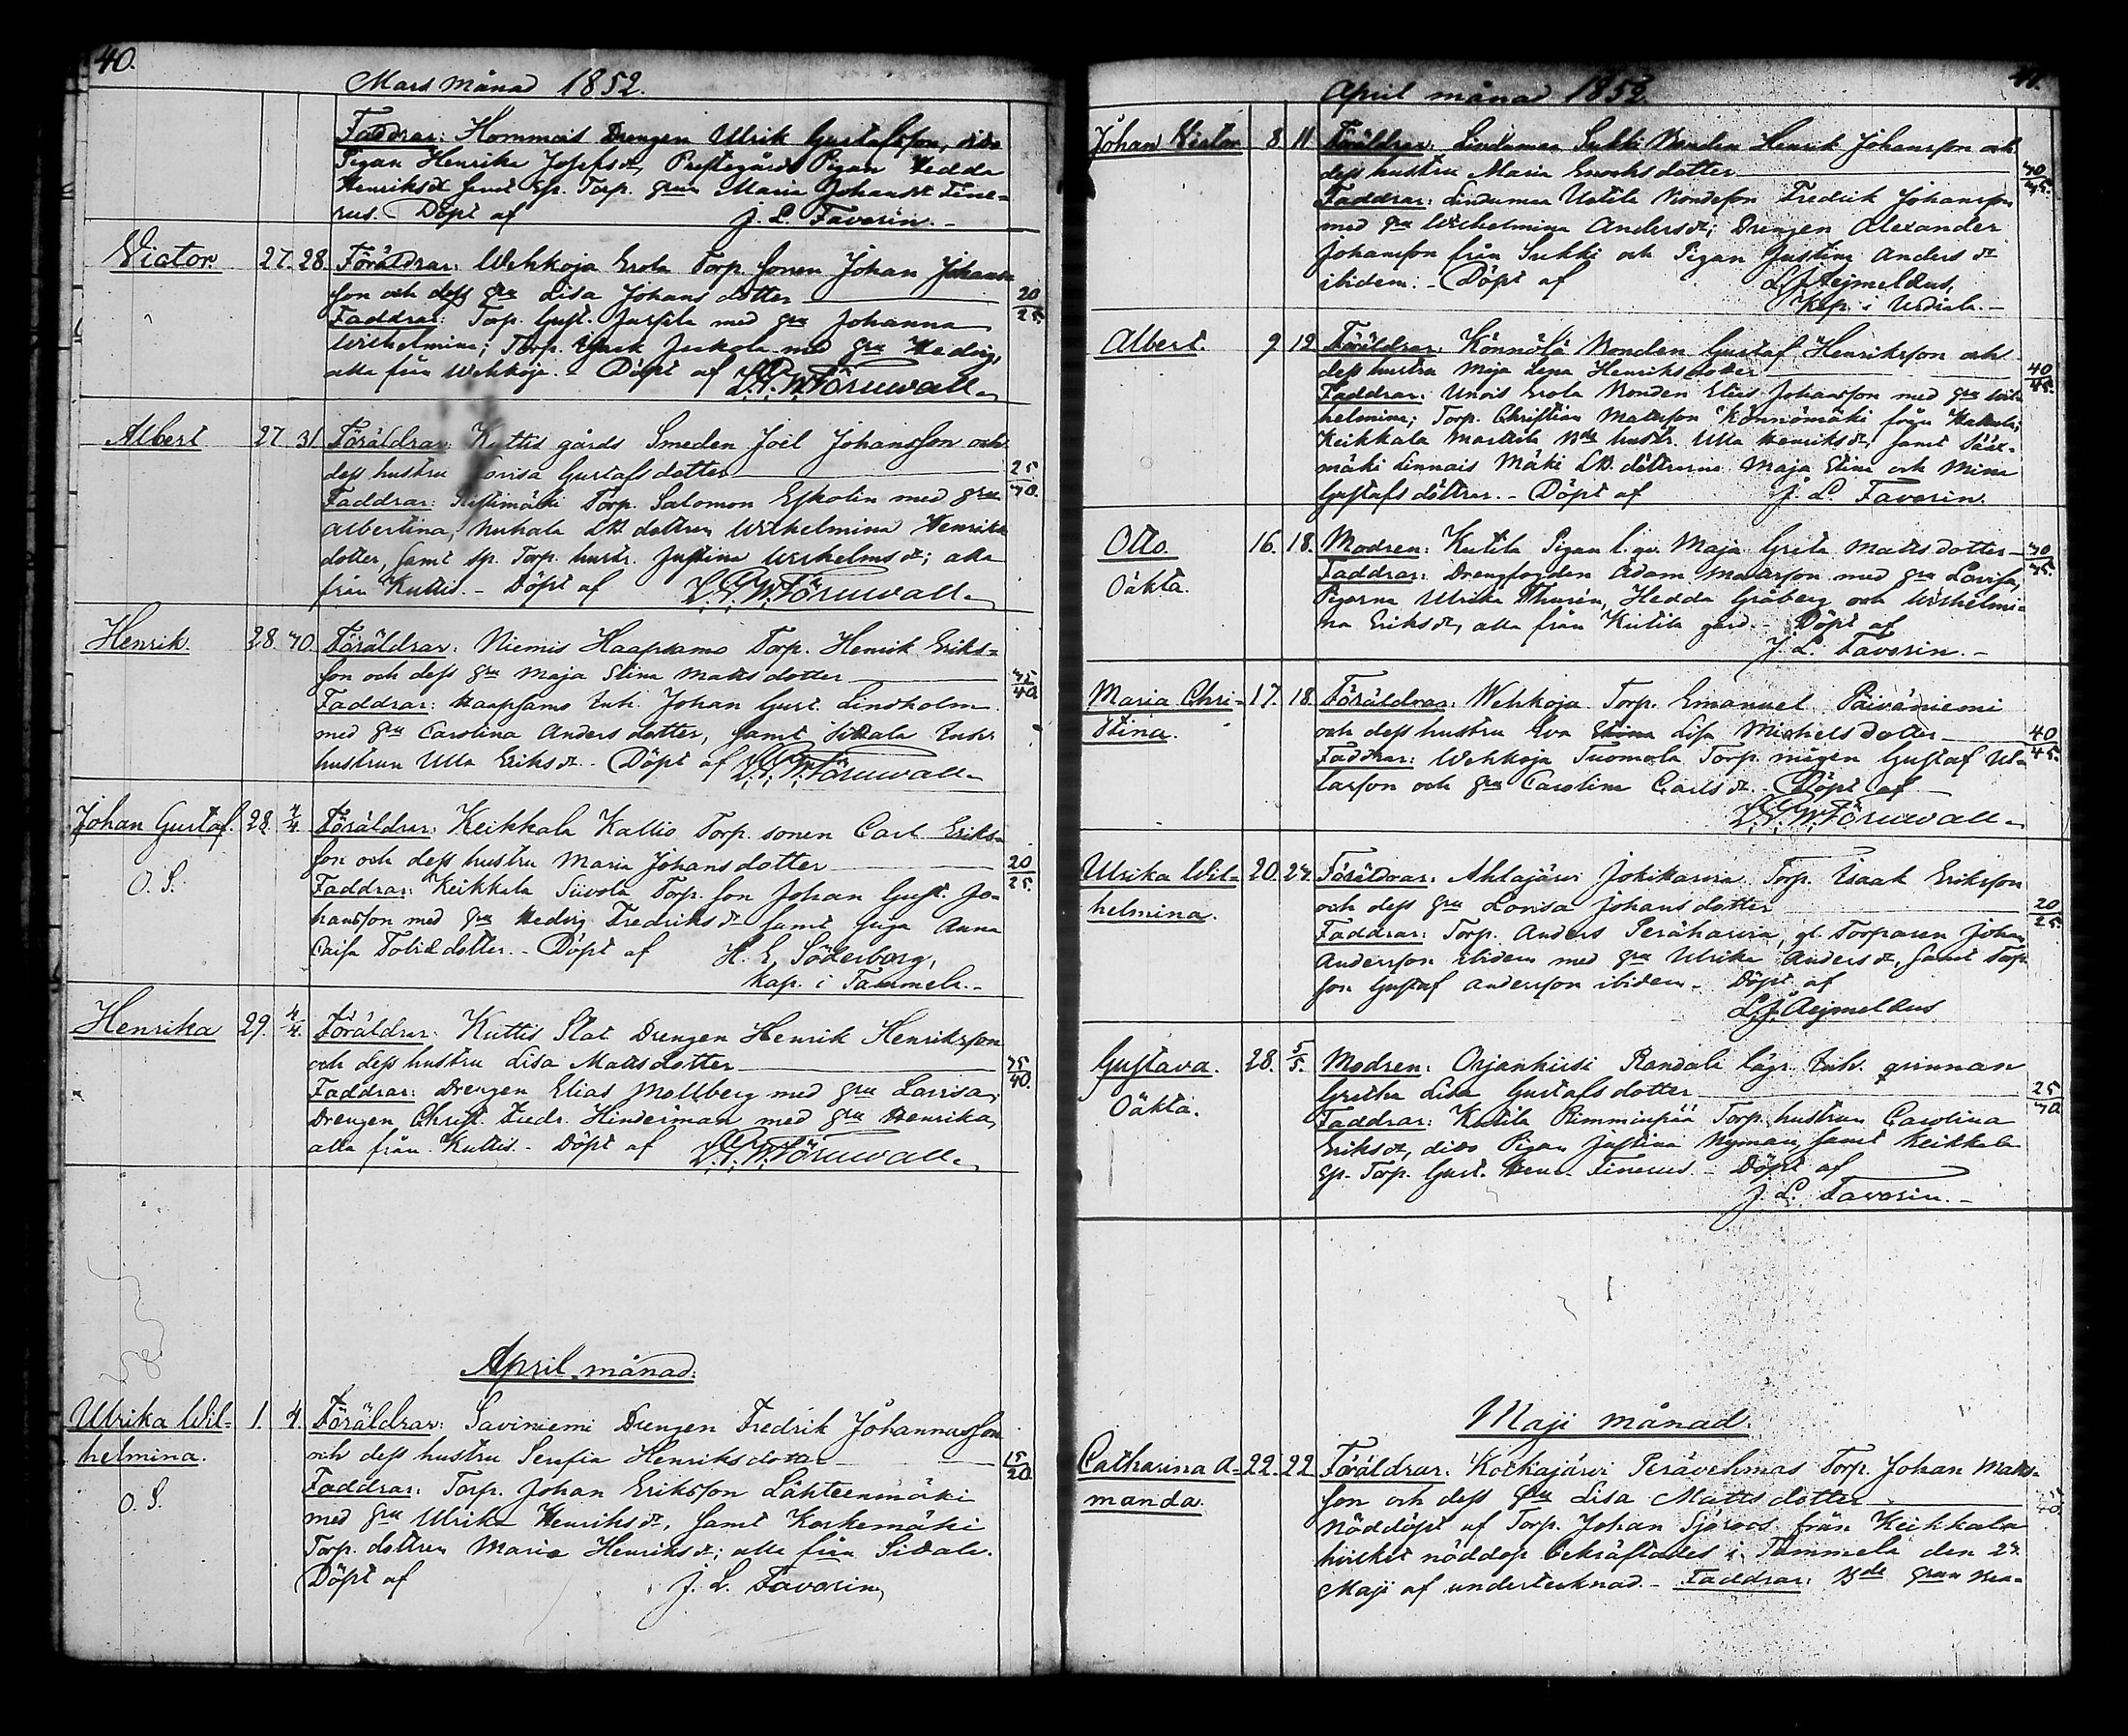 40.
Mars månad 1852.
Faddrar: Hommais Drengen Ulrik Gustafsson, dito
Pigan Henrika Josefsdr, Prestegårds Pigan Hedda
Henriksdr samt Sp. Torp. qvin Maria Johansdr Fine=
rus. Döpt af J. L. Favorin.
Victor. 27. 28. Föräldrar: Wehkoja Erola Torp. sonen Johan Johans
son och dess hu Lisa Johansdotter 20/25.
Faddrar: Torp. Gust. Jussila med hu Johanna
Wilhelmina; Torp. Isaak Juckola med hu Hedvig,
alla från Wehkoja. - Döpt af
Albert 27 31 Föräldrar: Kuttis gårds Smeden Joel Johansson och
dess hustru Lovisa Gustafsdotter 25/30.
Faddrar: Torp. Salomon Eskolin med hru
Albertina, LB dottren Wilhelmina Henriks
dotter, samt sp. Torp. hustr. Justina Wilhelmsdr; alla
från Kuttis. - Döpt af
Henrik. 28 30. Föräldrar: Niemis Haapsamo Torp. Henrik Eriks=
son och dess hru Maja Stina Mattsdotter 35/40.
Faddrar: Haapsamo Inh. Johan Gust. Lindholm
med hru Carolina Andersdotter, samt Sidala Inhs
hustrun Ulla Eriksdr. - Döpt af
Johan Gustaf. 28. 2/4 Föräldrar: Keikkala Kallio Torp. sonen Carl Eriks=
O. S. son och dess hustru Maria Johansdotter 20/25.
Faddrar: Keikkala Siivola Torp. son Johan Gust. Jo=
hansson med hru Hedvig Fredriksdr samt Piga Anna
Caisa dotter. - Döpt af H. E. Söderborg,
kap. i Tammela. -
Henrika 29. 4/4. Föräldrar: Kuttis Stat Drengen Henrik Henriksson
och dess hustru Lisa Mattsdotter 35/40.
Faddrar: Drengen Elias Mollberg med hru Lovisa,
Drengen Christ. Fredr. Hinderman med hru Henrika,
alla från Kuttis. - Döpt af
April månad.
Ulrika Wil= 1. 4. Föräldrar: Saviniemi Drengen Fredrik Johannesson
helmina. och dess hustru Serafia Henriksdotter 15/20.
O. S. Faddrar: Torp. Johan Eriksson Lähteenmäki
med hru Ulrika Henriksdr, samt Korkemäki
Torp. dottren Maria Henriksdr; alla från Sidala.
Döpt af J. L. Favorin,
41.
April månad 1852.
Johan Victor 8 11 Föräldrar: Lindumaa Sukki Bonden Henrik Johansson och
dess hustru Maria Enochsdotter 30/35.
Faddrar: Lindumaa Uotila Bondeson Fredrik Johansson
med hru Wilhelmina Andersdr; Drengen Alexander
Johansson från Sukki och Pigan Justina Andersdr
ibidem. - Döpt af L. J. Aejmelæus,
Kap. i Urdiala. -
Albert. 9 12 Föräldrar: Könnölä Bonden Gustaf Henriksson och
dess hustru Maja Lena Henriksdotter 40/45.
Faddrar: Unois Erola Bonden Elias Johansson med hru Wil=
helmina; Torp. Christian Mattsson Könnömäki från
Keikkala Marttila Bds hustr. Ulla Henriksdr, samt Sääx=
mäki Linnais Mäki LB. döttrarne Maja Stina och Mina
Gustafsdöttrar. - Döpt af J. L. Favorin.
Otto. 16. 18. Modren: Kutila Pigan l. qv. Maja Greta Mattsdotter 30/35.
Oäkta. Faddrar: Drengfogden Adam Mattsson med hru Lovisa,
Pigorna Ulrika Thurén, Hedda Gråberg och Wilhelmi=
na Eriksdr, alla från Kutila gård. - Döpt af
J. L. Favorin. -
Maria Chri= 17. 18. Föräldrar: Wehkoja Torp. Emanuel Päiväniemi
stina. och dess hustru Eva Lisa Michelsdotter 40/45.
Faddrar: Wehkoja Tuomola Torp. mågen Gustaf
larsson och hru Carolina Carlsdr. - Döpt af
Ulrika Wil= 20. 24. Föräldrar: Ahlajärvi Jokikarvia Torp. Isaak Eriksson
helmina. och dess hru Lovisa Johansdotter 20/25.
Faddrar: Torp. Anders Peräharvia, gl. Torparen Johan
Andersson ibidem med hru Ulrika Andersdr, samt Torp.
son Gustaf Andersson ibidem. - Döpt af
L. J. Aejmelæus
Gustava. 28. 5/5. Modren: Orjanhiisi Randala lägr. Inhs. qvinnan
Oäkta. Greta Lisa Gustafsdotter 25/30
Faddrar: Kutila Rimminpää Torp. hustrun Carolina
Eriksdr, dito Pigan Justina Nyman, samt Keikkala
Sp. Torp. Gust. Henr. Finerus. - Döpt af
J. L. Favorin. -
Maji månad.
Catharina A= 22. 22 Föräldrar: Koikajärvi Perävehmas Torp. Johan Matts=
manda. son och dess hru Lisa Mattsdotter
Nöddöpt af Torp. Johan Sjöroos från Keikkala
hvilket nöddop bekräftades i Tammela den 23
Maji af undertecknad. - Faddrar: Bde